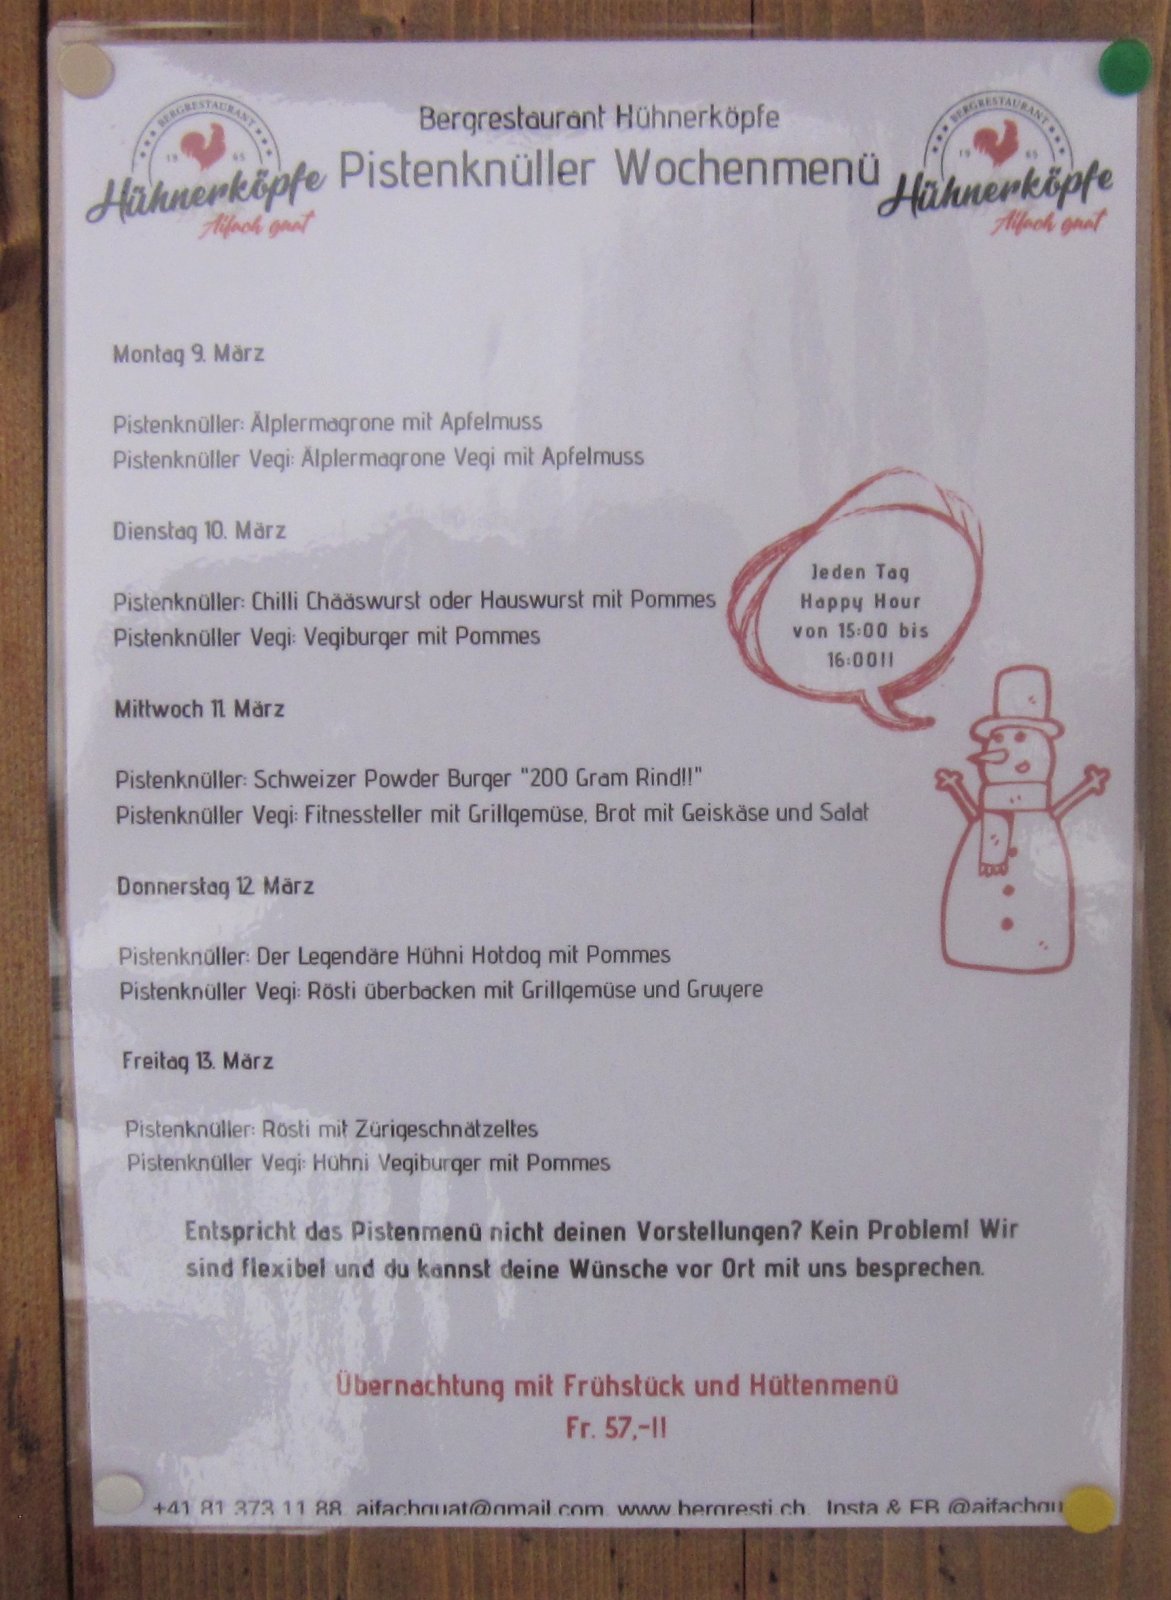 BERGRESTAURANT
19 65
Hühnerköpfe
Aifach guat
Bergrestaurant Hühnerköpfe
Pistenknüller Wochenmenü
BERGRESTAURANT
19 65
Hühnerköpfe
Aifach guat
Montag 9. März
Pistenknüller: Älplermagrone mit Apfelmuss
Pistenknüller Vegi: Älplermagrone Vegi mit Apfelmuss
Dienstag 10. März
Pistenknüller: Chilli Chääswurst oder Hauswurst mit Pommes
Pistenknüller Vegi: Vegiburger mit Pommes
Jeden Tag
Happy Hour
von 15:00 bis
16:00!!
Mittwoch 11. März
Pistenknüller: Schweizer Powder Burger "200 Gram Rind!!"
Pistenknüller Vegi: Fitnessteller mit Grillgemüse, Brot mit Geiskäse und Salat
Donnerstag 12. März
Pistenknüller: Der Legendäre Hühni Hotdog mit Pommes
Pistenknüller Vegi: Rösti überbacken mit Grillgemüse und Gruyere
Freitag 13. März
Pistenknüller: Rösti mit Zürigeschnätzeltes
Pistenknüller Vegi: Hühni Vegiburger mit Pommes
Entspricht das Pistenmenü nicht deinen Vorstellungen? Kein Problem! Wir
sind flexibel und du kannst deine Wünsche vor Ort mit uns besprechen.
Übernachtung mit Frühstück und Hüttenmenü
Fr. 57,-!!
+41 81 373 11 88, aifachguat@gmail.com, www.bergresti.ch, Insta & FB @aifachgu